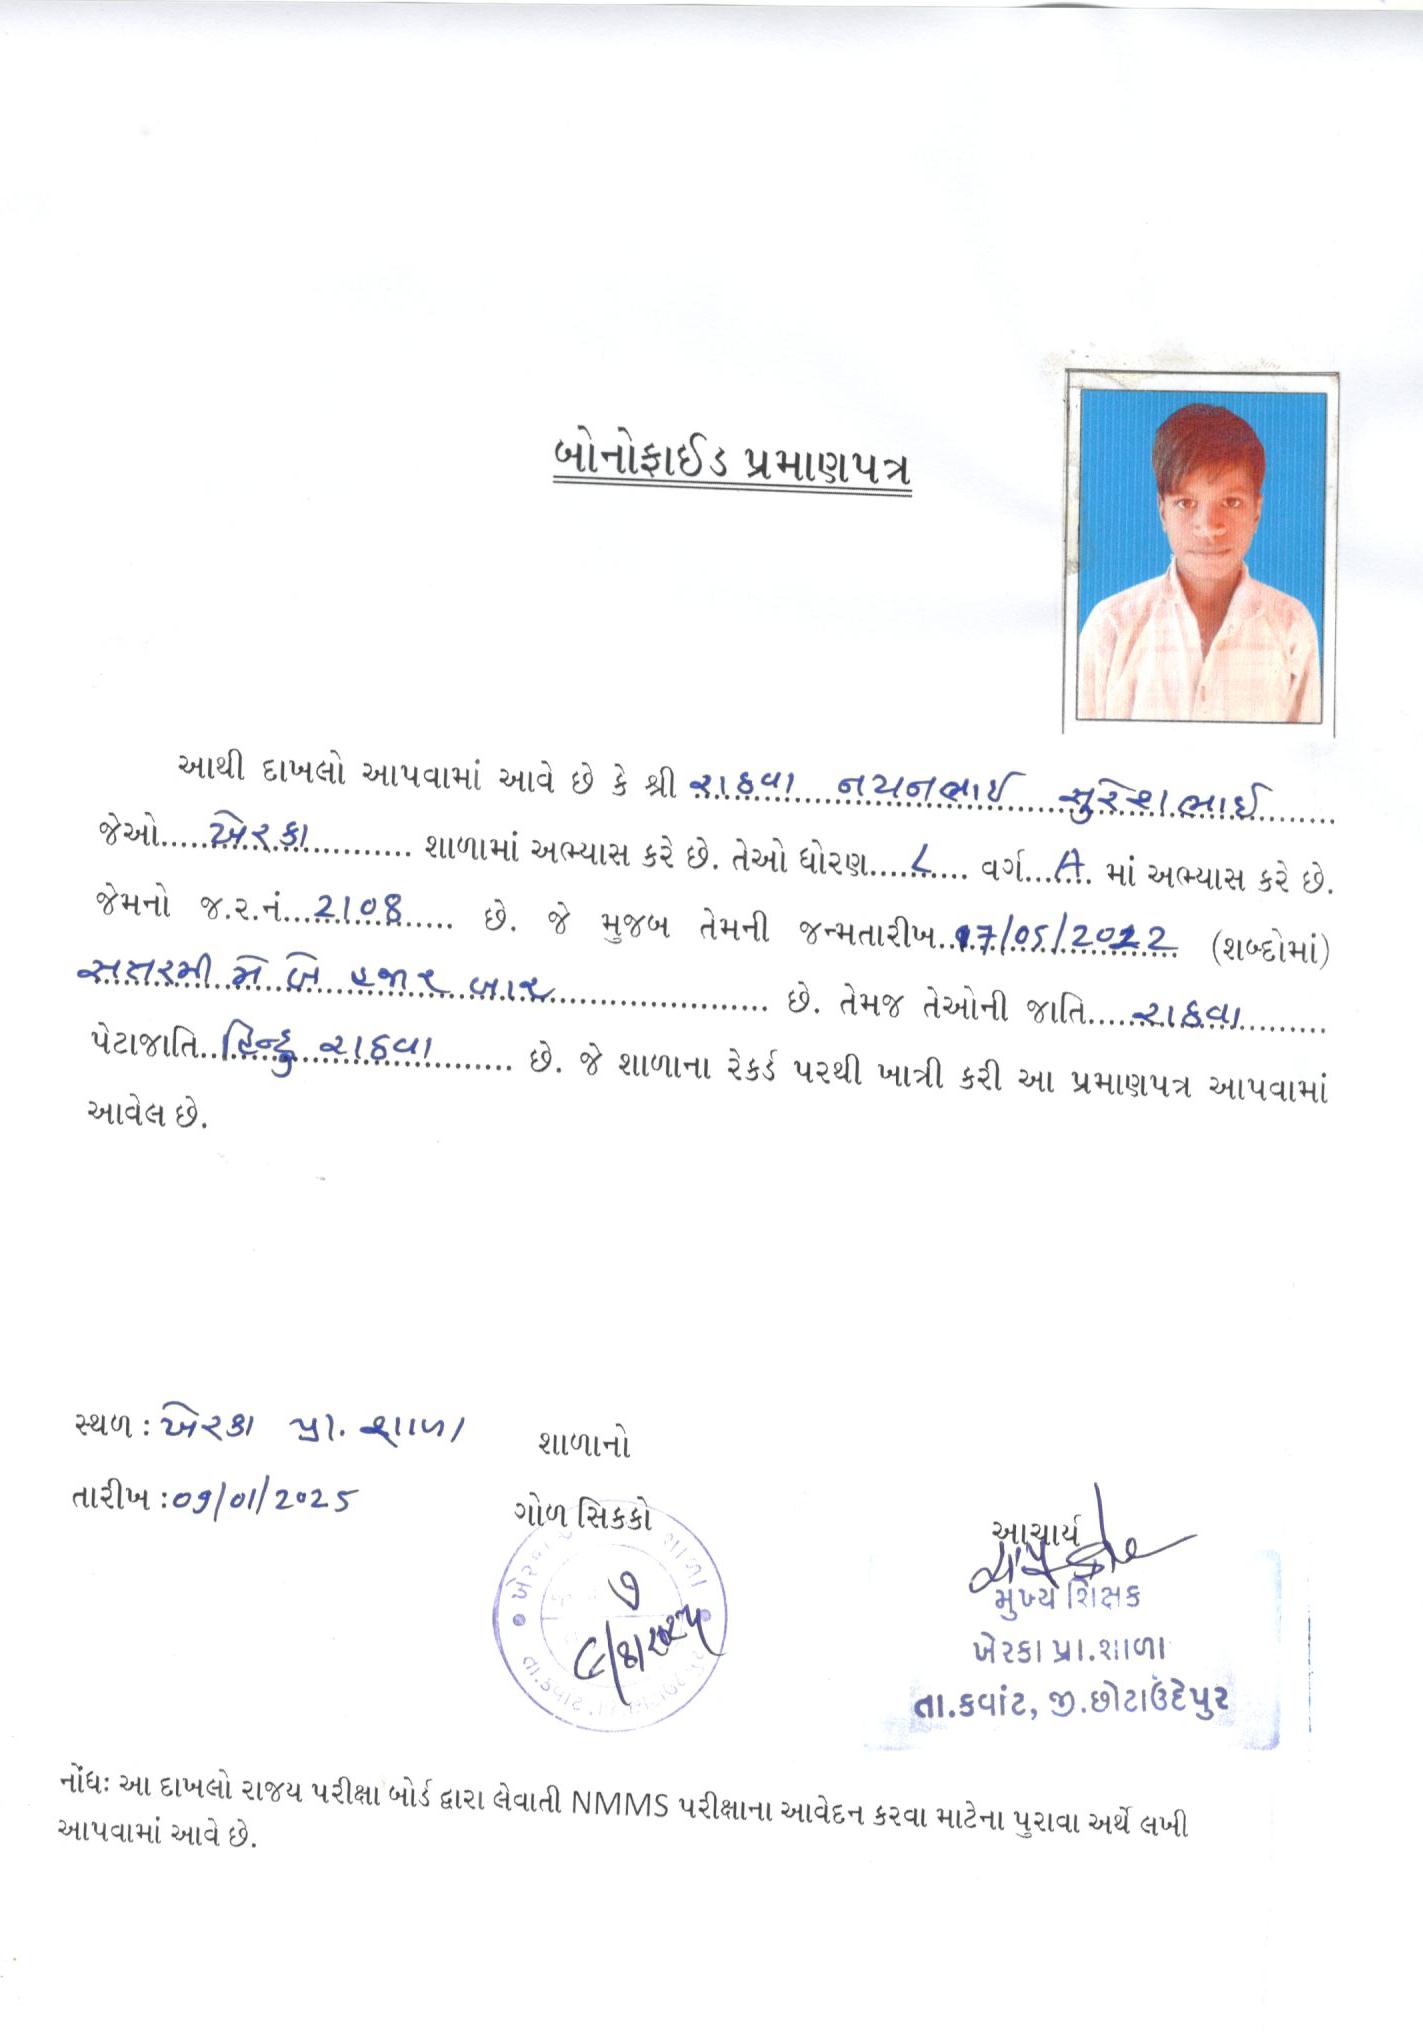 બોનોફાઈડ પ્રમાણપત્ર
આથી દાખલો આપવામાં આવે છે કે શ્રી રાઠવા નયનભાઈ સુરેશભાઈ
જેઓ.....ખેરકા.............. શાળામાં અભ્યાસ કરે છે. તેઓ ધોરણ....૮..... વર્ગ...A.. માં અભ્યાસ કરે છે.
જેમનો જ.ર.નં...2108...... છે. જે મુજબ તેમની જન્મતારીખ..17/05/2012 (શબ્દોમાં)
સત્તરમી મે બે હજાર બાર........................ છે. તેમજ તેઓની જાતિ.....રાઠવા.........
પેટાજાતિ..હિન્દુ રાઠવા......... છે. જે શાળાના રેકર્ડ પરથી ખાત્રી કરી આ પ્રમાણપત્ર આપવામાં
આવેલ છે.
સ્થળ : ખેરકા પ્રા. શાળા
શાળાનો
તારીખ : 09/01/2025
ગોળ સિકકો
આચાર્ય
મુખ્ય શિક્ષક
ખેરકા પ્રા.શાળા
તા.કવાંટ, જી.છોટાઉદેપુર
નોંધઃ આ દાખલો રાજય પરીક્ષા બોર્ડ દ્વારા લેવાતી NMMS પરીક્ષાના આવેદન કરવા માટેના પુરાવા અર્થે લખી
આપવામાં આવે છે.